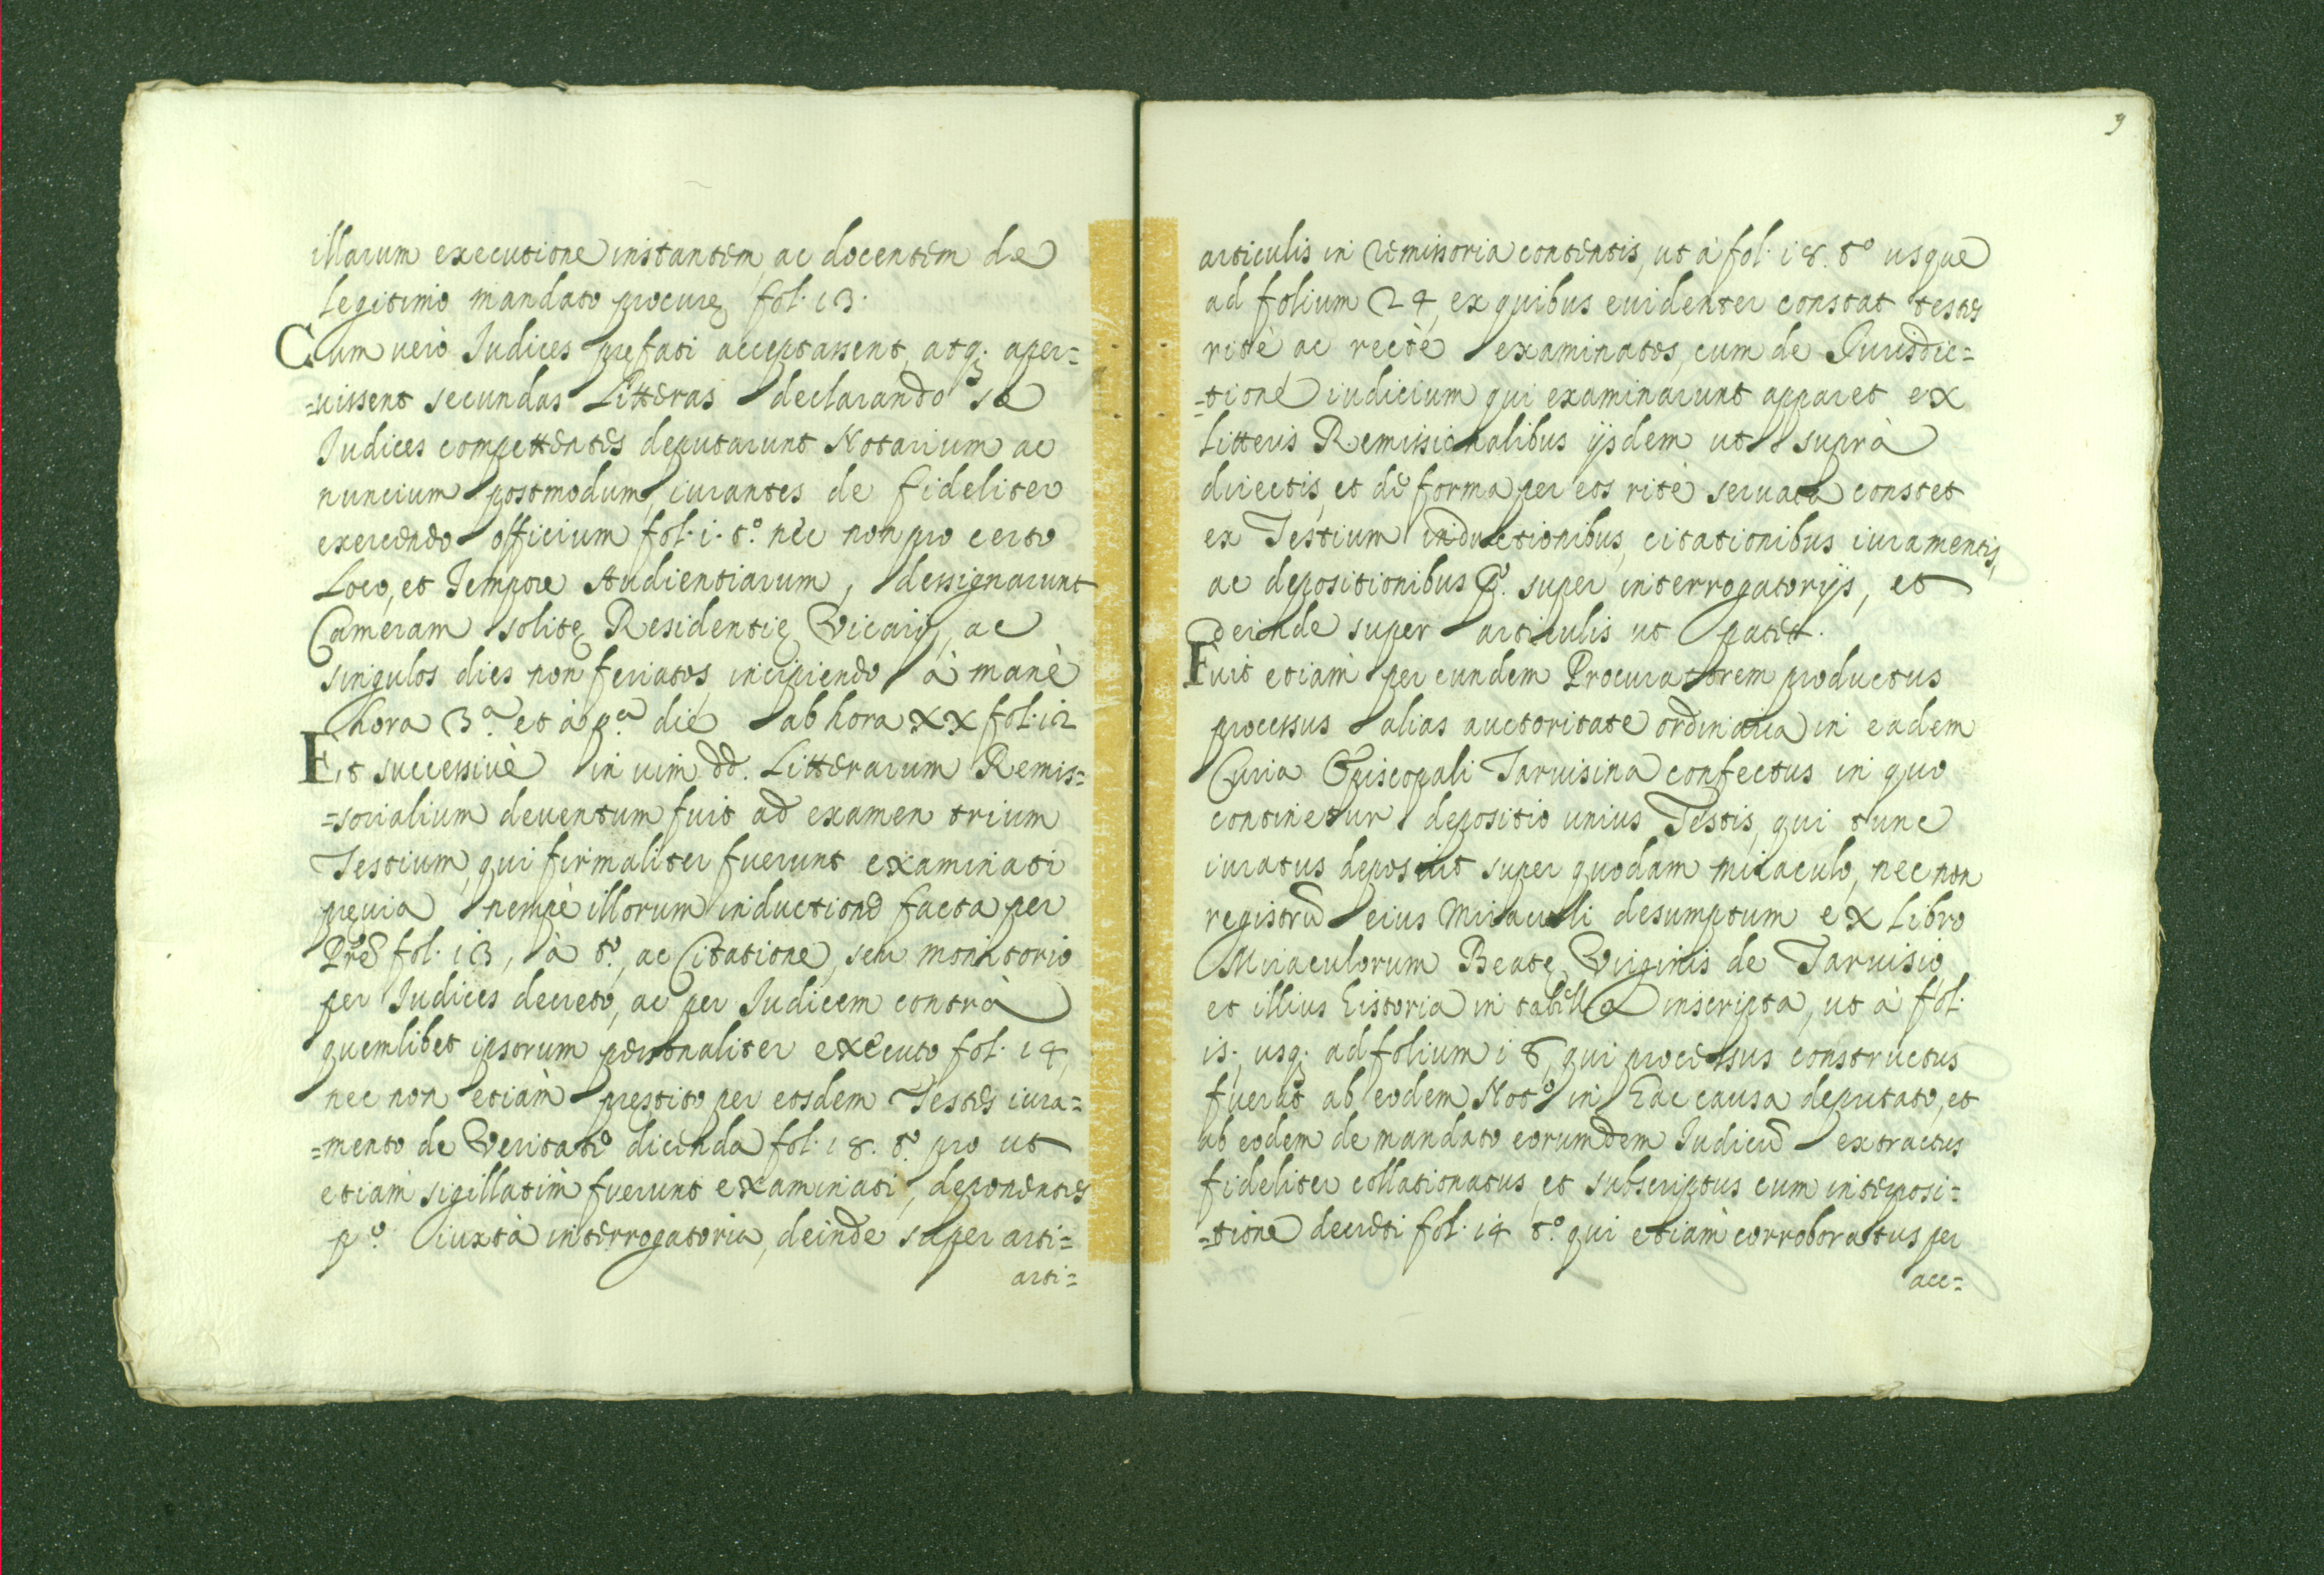 illarum executione instantem, ac docentem de
legitimo mandato procurę fol. 13.
Cum uero Judices prefati acceptassent, atq. aper=
=uissent secundas Litteras declarando se
Judices competentes deputarunt Notarium ac
nuncium postmodum, iurantes de fideliter
exercendo officium fol. 1. tº. nec non pro certo
Loco, et Tempore Audientiarum, dessignarunt
Cameram solitę Residentię Vicarij, ac
singulos dies non feriatos, incipiendo à manè
hora 3.ª et à p.ª die ab hora XX fol. 12
Et successiuè in uim dd. Litterarum Remis=
=sorialium deuentum fuit ad examen trium
Testium, qui firmaliter fuerunt examinati
preuia nempè illorum inductione facta per
Prem fol. 13, à tº, ac Citatione, seu monitorio
per Judices decreto, ac per Judicem contrà
quemlibet ipsorum personaliter executo fol. 14,
nec non etiàm prestito per eosdem Testes iura=
=mento de Veritate dicenda fol. 18. tº. pro ut
etiam sigillatim fuerunt examinati, deponentes
pº. iuxtà interrogatoria, deinde super arti=
arti=
9
articulis in remissoria contentis, ut à fol. 18. tº usque
ad folium 24, ex quibus euidenter constat testes
ritè ac rectè examinatos, cum de Jurisdic=
=tione iudicium qui examinarunt apparet ex
Litteris Remissionalibus ijsdem ut suprà
directis, et de forma per eos ritè seruata constet
ex Testium inductionibus, citationibus iuramentis,
ac depositionibus pº. super interrogatorijs, et
deinde super articulis ut patet.
Fuit etiàm per eundem Procuratorem productus
processus alias auctoritate ordinaria in eadem
Curia Episcopali Taruisina confectus in quo
continetur depositio unius Testis, qui tunc
iuratus deposuit super quodam miraculo, nec non
registrũ eius Miraculi desumptum ex Libro
Miraculorum Beatę Virginis de Taruisio
et illius historia in tabella inscripta, ut à fol.
15. usq. ad folium 18, qui processus constructus
fuerat ab eodem Notº in hac causa deputato, et
ab eodem de mandato eorumdem Judicũ extractus
fideliter collationatus, et subscriptus cum interposi=
=tione decreti fol. 14 tº. qui etiàm corroboratus per
acc=